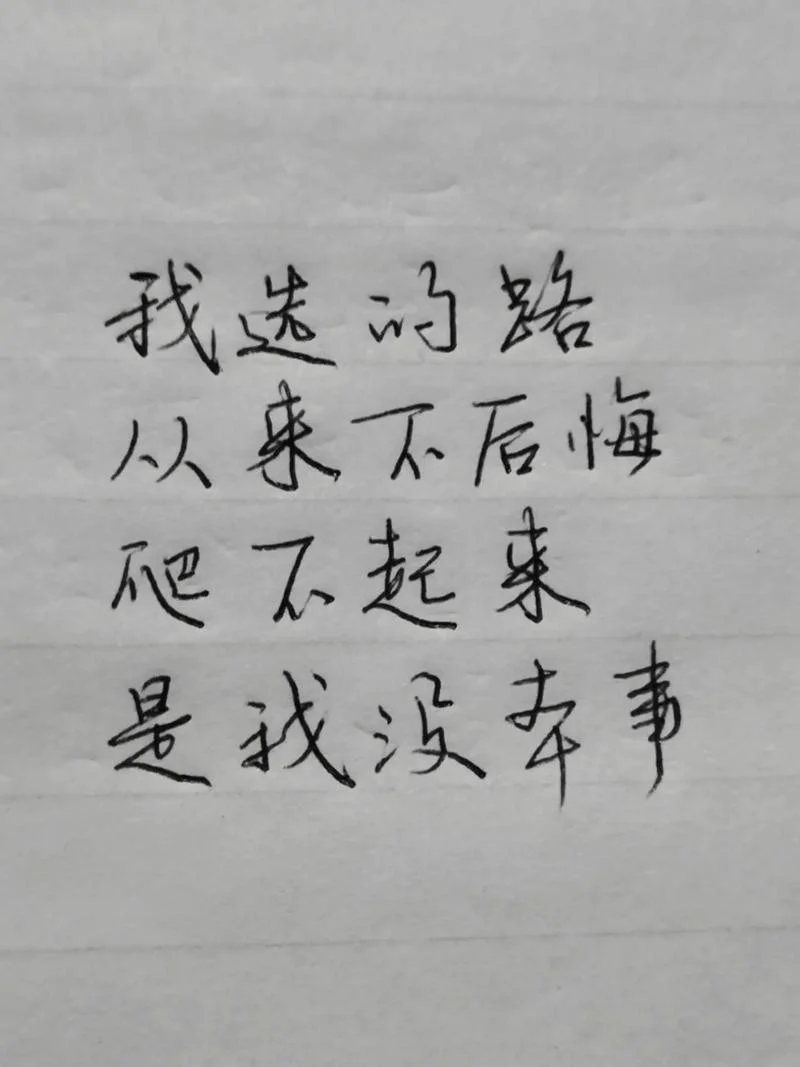 我选的路
从来不后悔
爬不起来
是我没本事